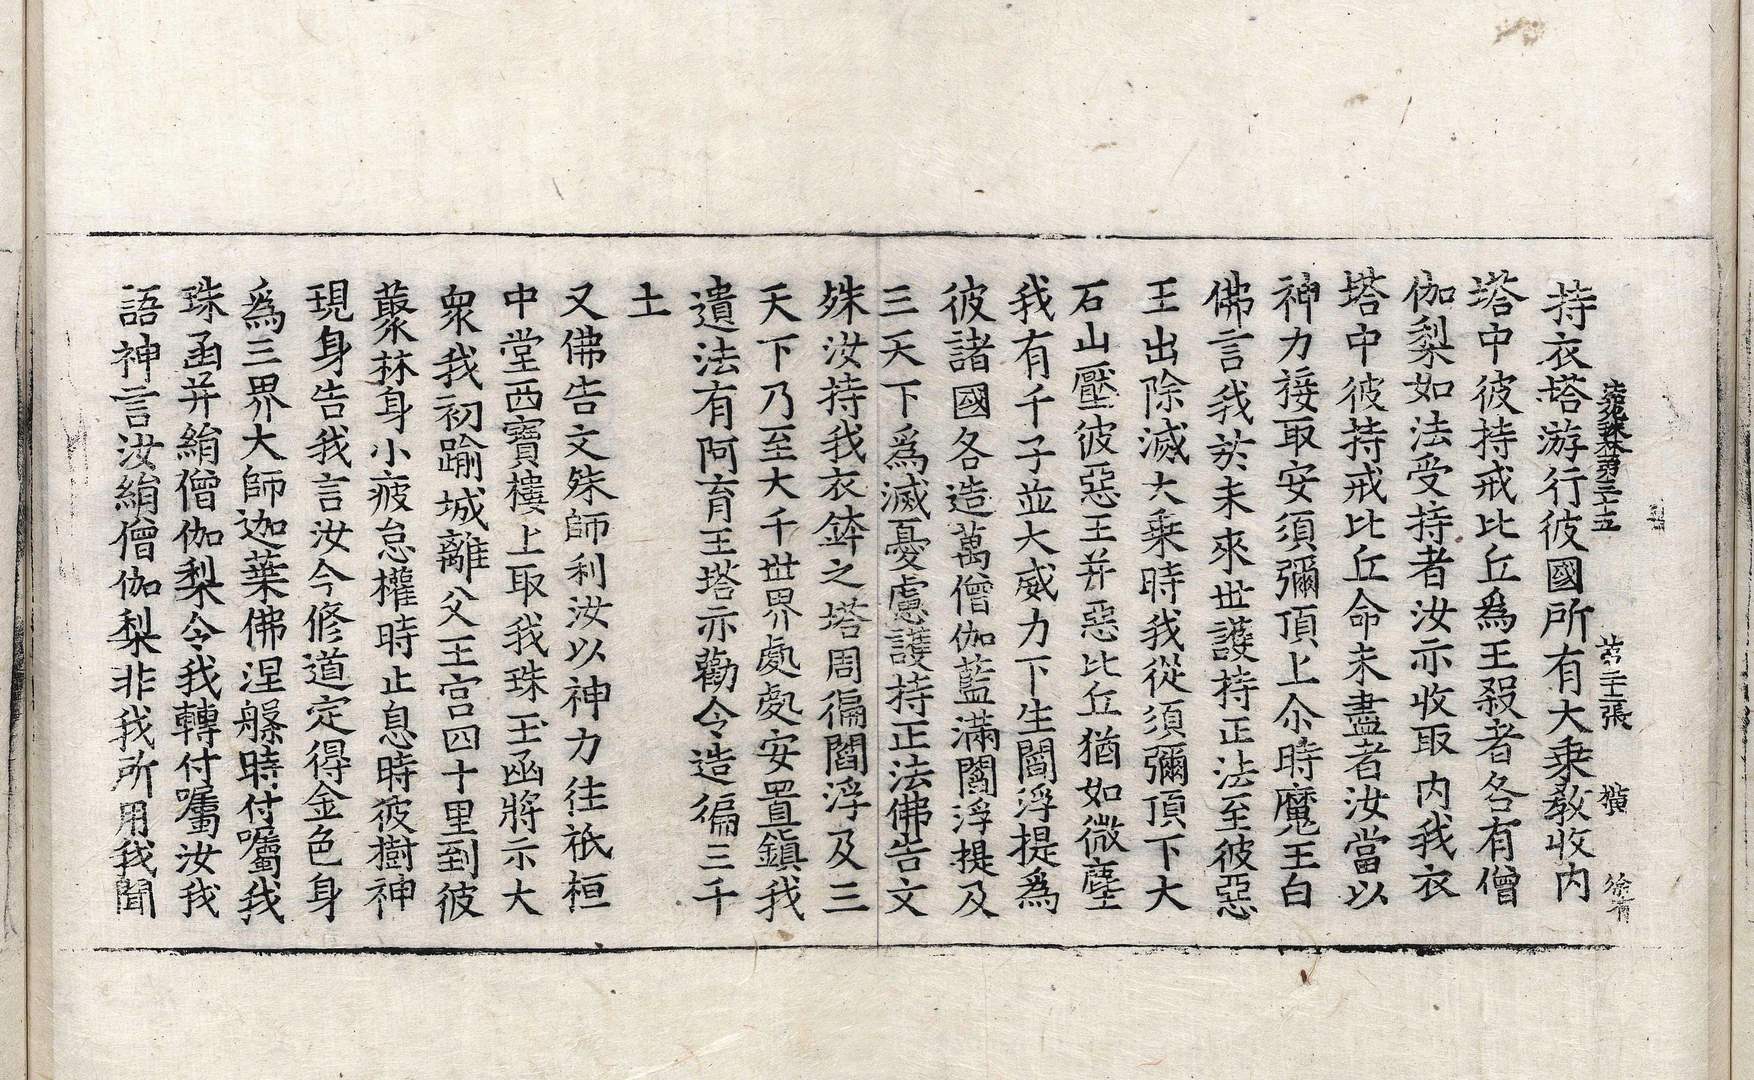 法苑珠林第三十五　第二十三張　横
持衣塔游行彼國所有大乗教收内
塔中彼持戒比丘爲王殺者各有僧
伽梨如法受持者汝示收取内我衣
塔中彼持戒比丘命未盡者汝當以
神力接取安須彌頂上尒時魔王白
佛言我於未來世護持正法至彼惡
王出除滅大乗時我從須彌頂下大
石山壓彼惡王并惡比丘猶如微塵
我有千子並大威力下生閻浮提爲
彼諸國各造萬僧伽藍滿閻浮提及
三天下爲滅憂慮護持正法佛告文
殊汝持我衣鉢之塔周徧閻浮及三
天下乃至大千世界處處安置鎮我
遺法有阿育王塔示勸令造徧三千
土
又佛告文殊師利汝以神力往祇桓
中堂西寶樓上取我珠玉函將示大
衆我初踰城離父王宮四十里到彼
藂林身小疲怠權時止息時彼樹神
現身告我言汝今修道定得金色身
爲三界大師迦葉佛涅槃時付囑我
珠函并絹僧伽梨令我轉付囑汝我
語神言汝絹僧伽梨非我所用我聞